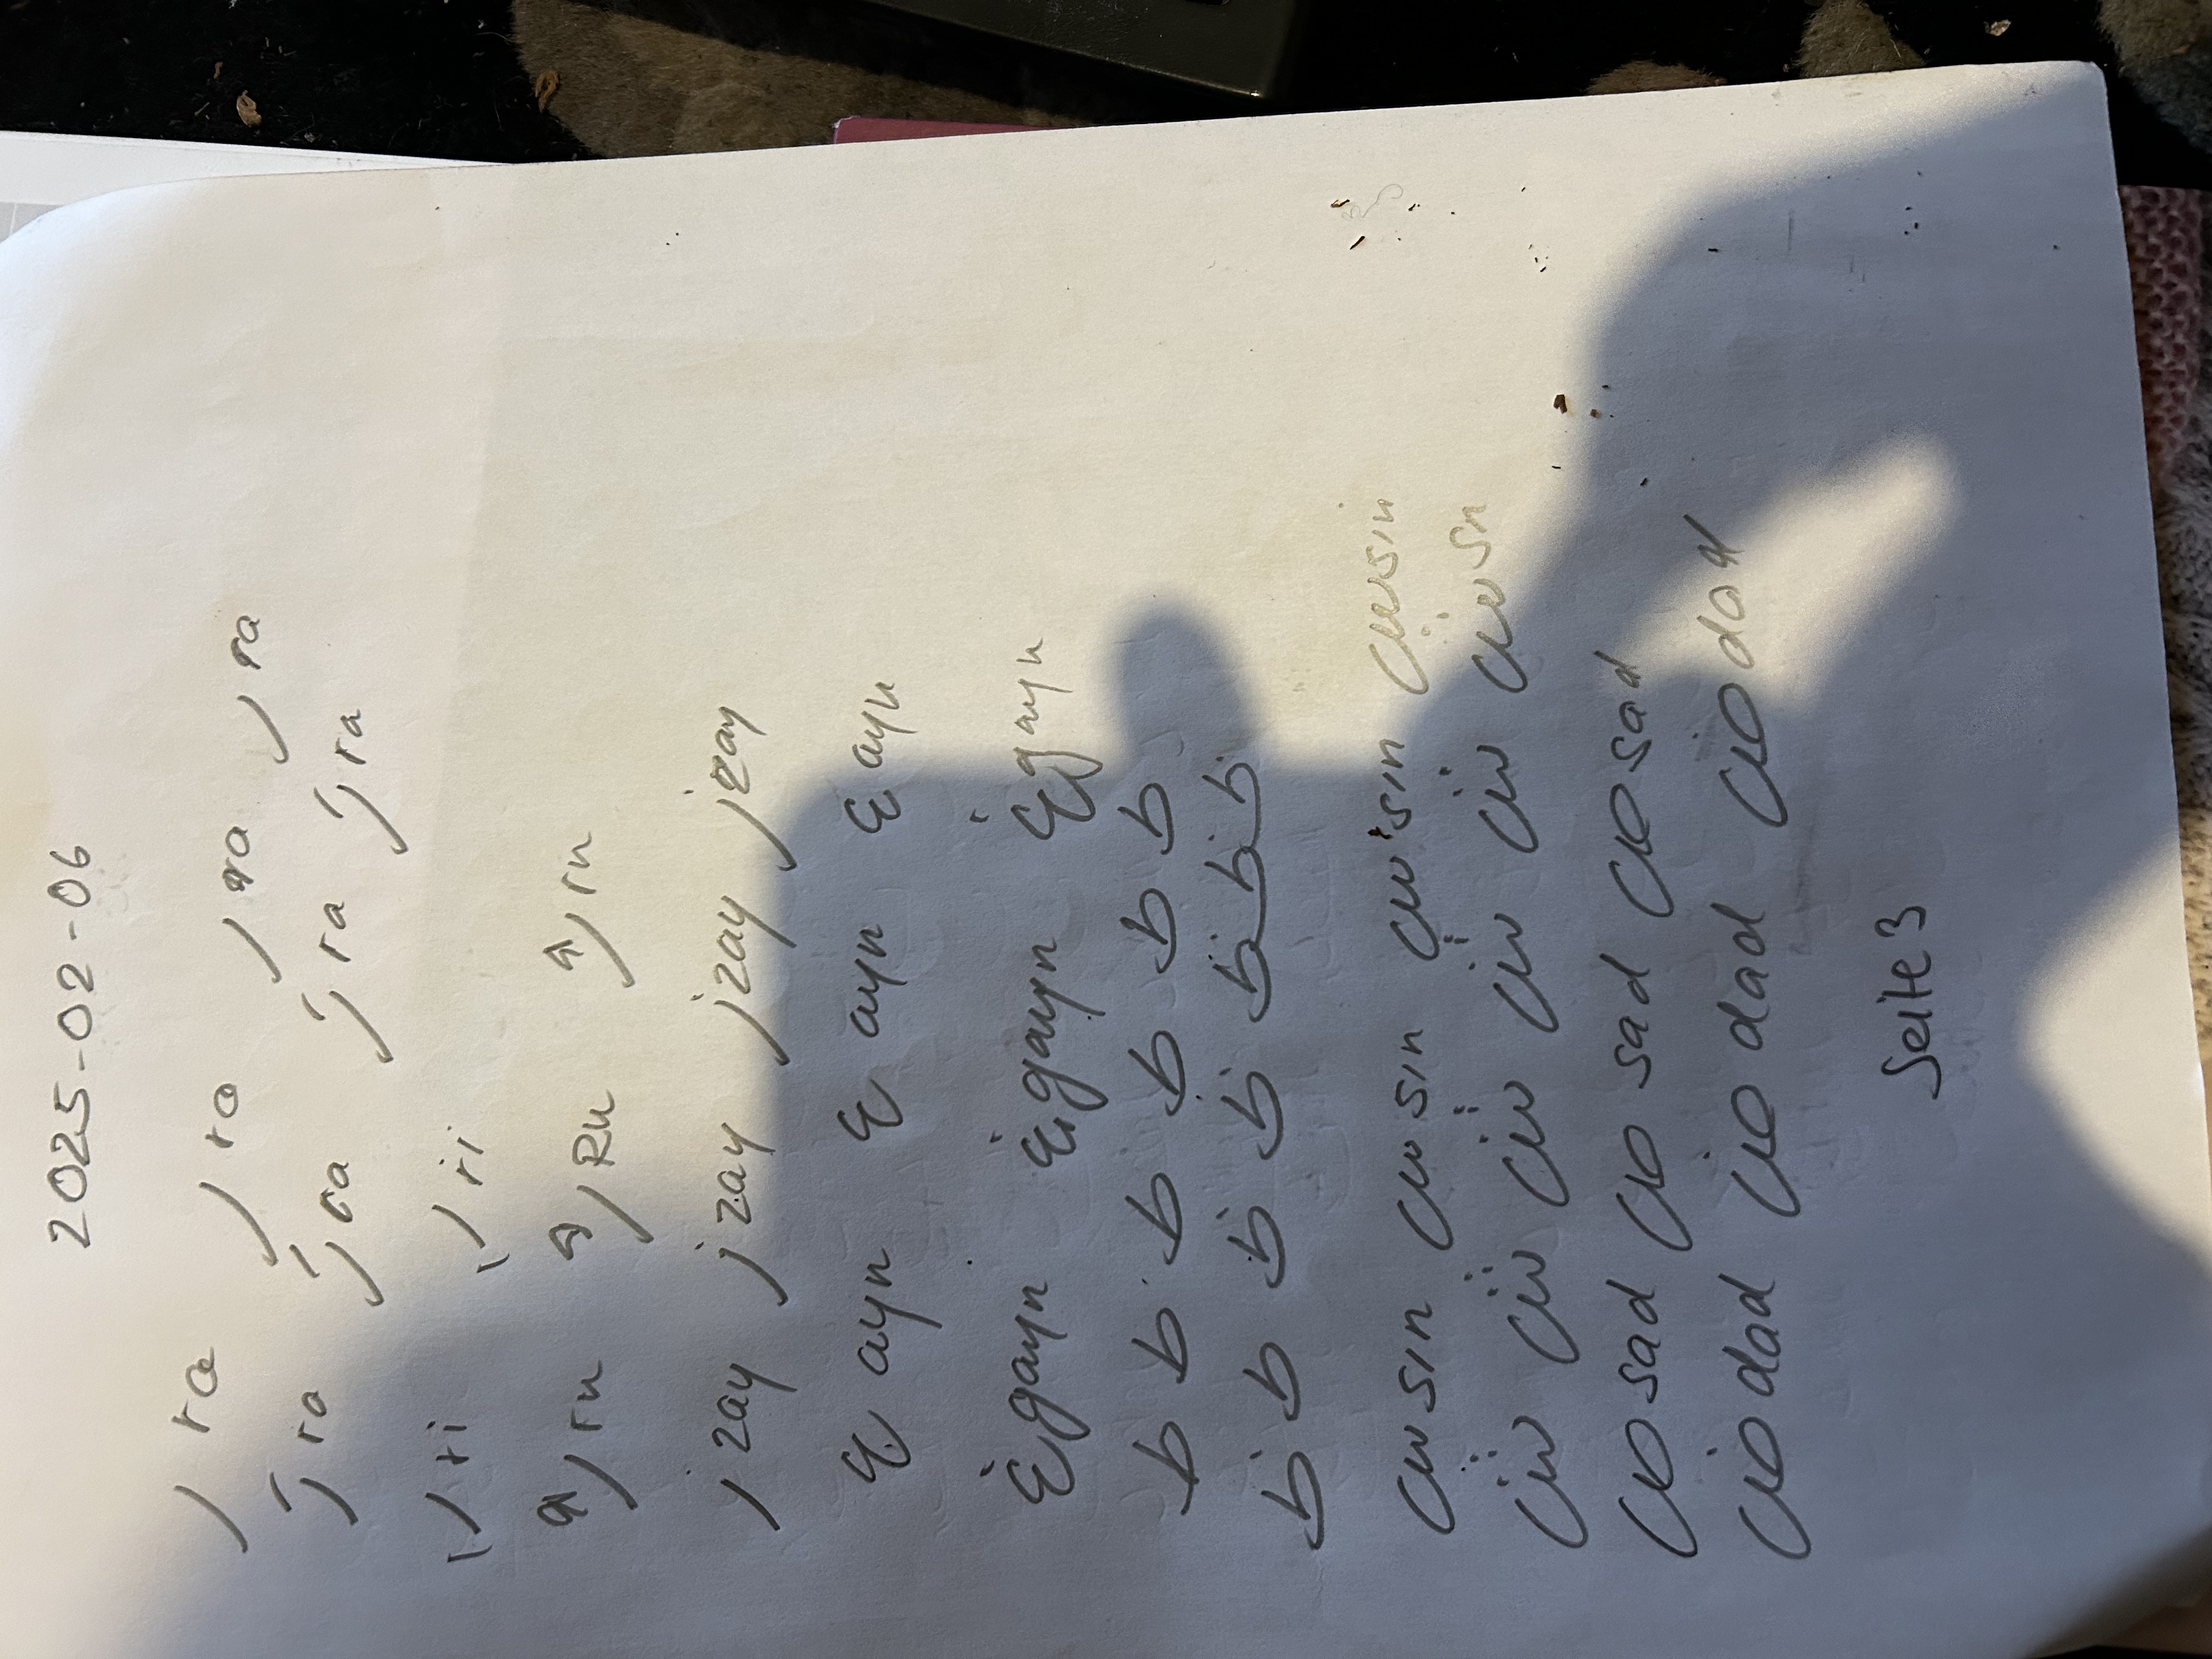 2025-02-06
ر ra ر ra ر ra ر ra
رَ ra رَ ra رَ ra رَ ra
رِ ri رِ ri
رُ ru رُ Ru رُ ru
ر zay ز zay ز zay ز zay
ع ayn ع ayn ع ayn
غ gayn غ gayn غ gayn
ط ط ط ط ط ط
ظ ط ظ ظ ظ ظ ظ
س sin س sin س sin س sin
ش ش ش ش ش ش sn
ص sad ص sad ص sad
ض dad ض dad ض dad
Seite 3